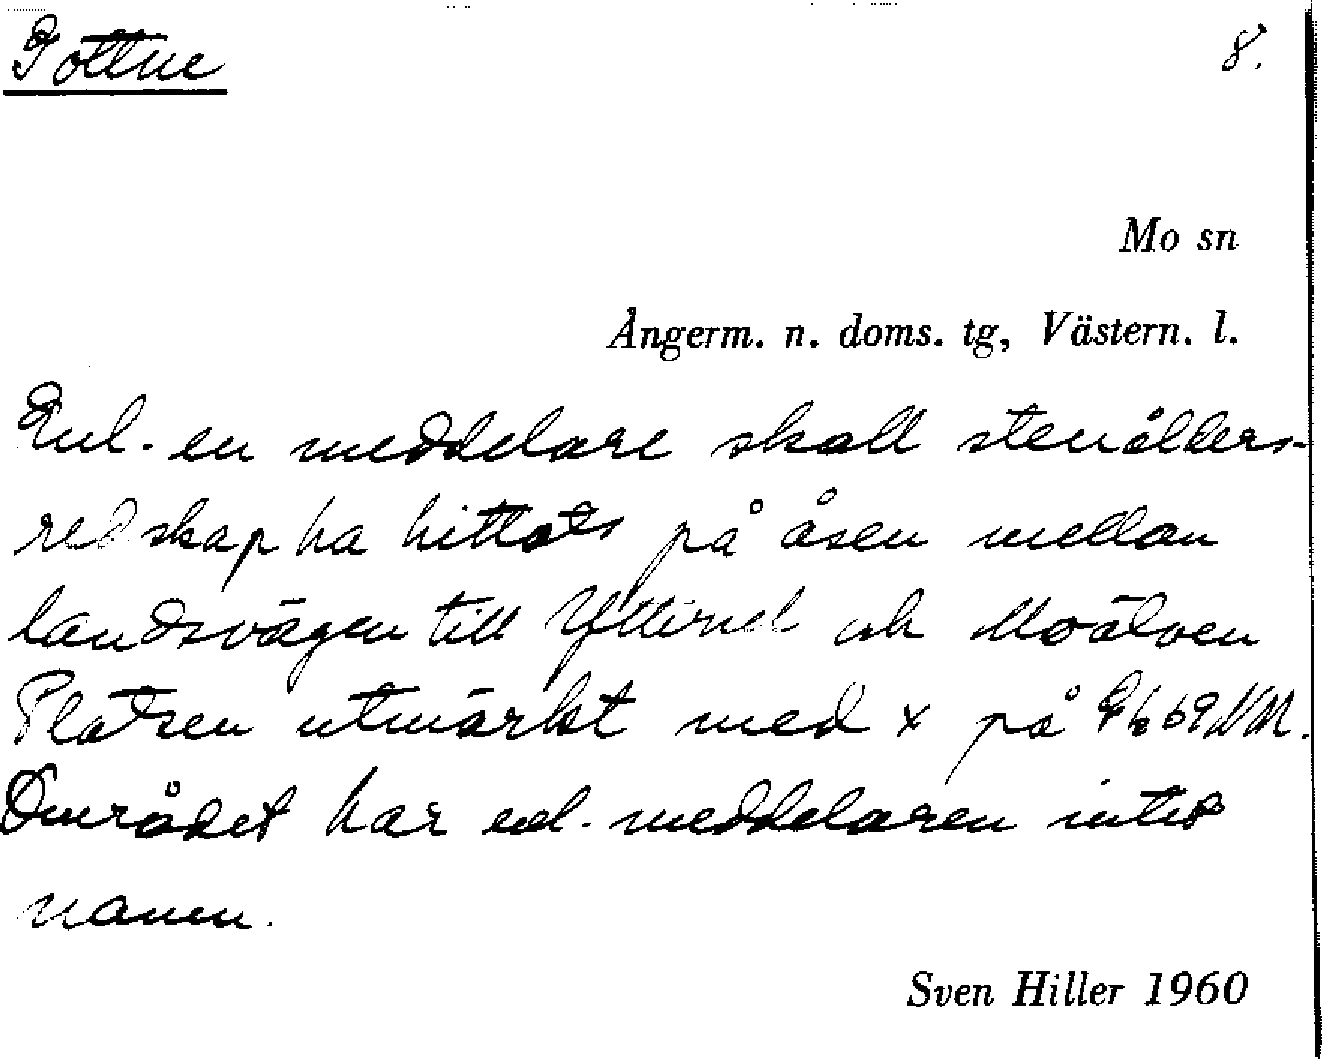 Gottne 8.
Mo sn
Ångerm. n. doms. tg, Västern. l.
Enl. en meddelare skall stenålders-
redskap ha hittats på åsen mellan
landsvägen till Yttersel och Moälven
Platsen utmärkt med x på 69 NM.
Området har enl. meddelaren intet
namn.
Sven Hiller 1960